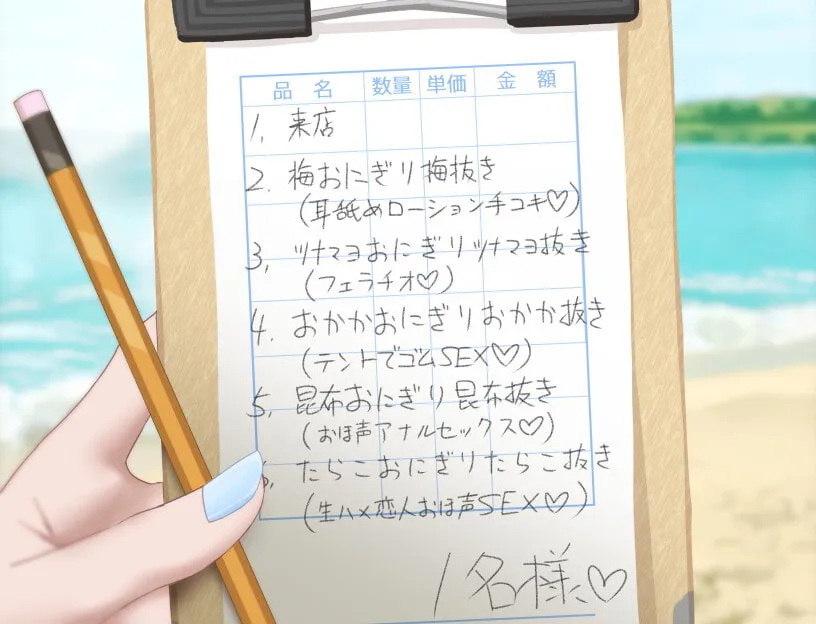 品名 数量 単価 金額
1, 来店
2. 梅おにぎり梅抜き
(耳舐めローション手コキ♡)
3, ツナマヨおにぎりツナマヨ抜き
(フェラチオ♡)
4. おかかおにぎりおかか抜き
(テントでゴムSEX♡)
5, 昆布おにぎり昆布抜き
(おほ声アナルセックス♡)
6, たらこおにぎりたらこ抜き
(生ハメ恋人おほ声SEX♡)
1名様♡